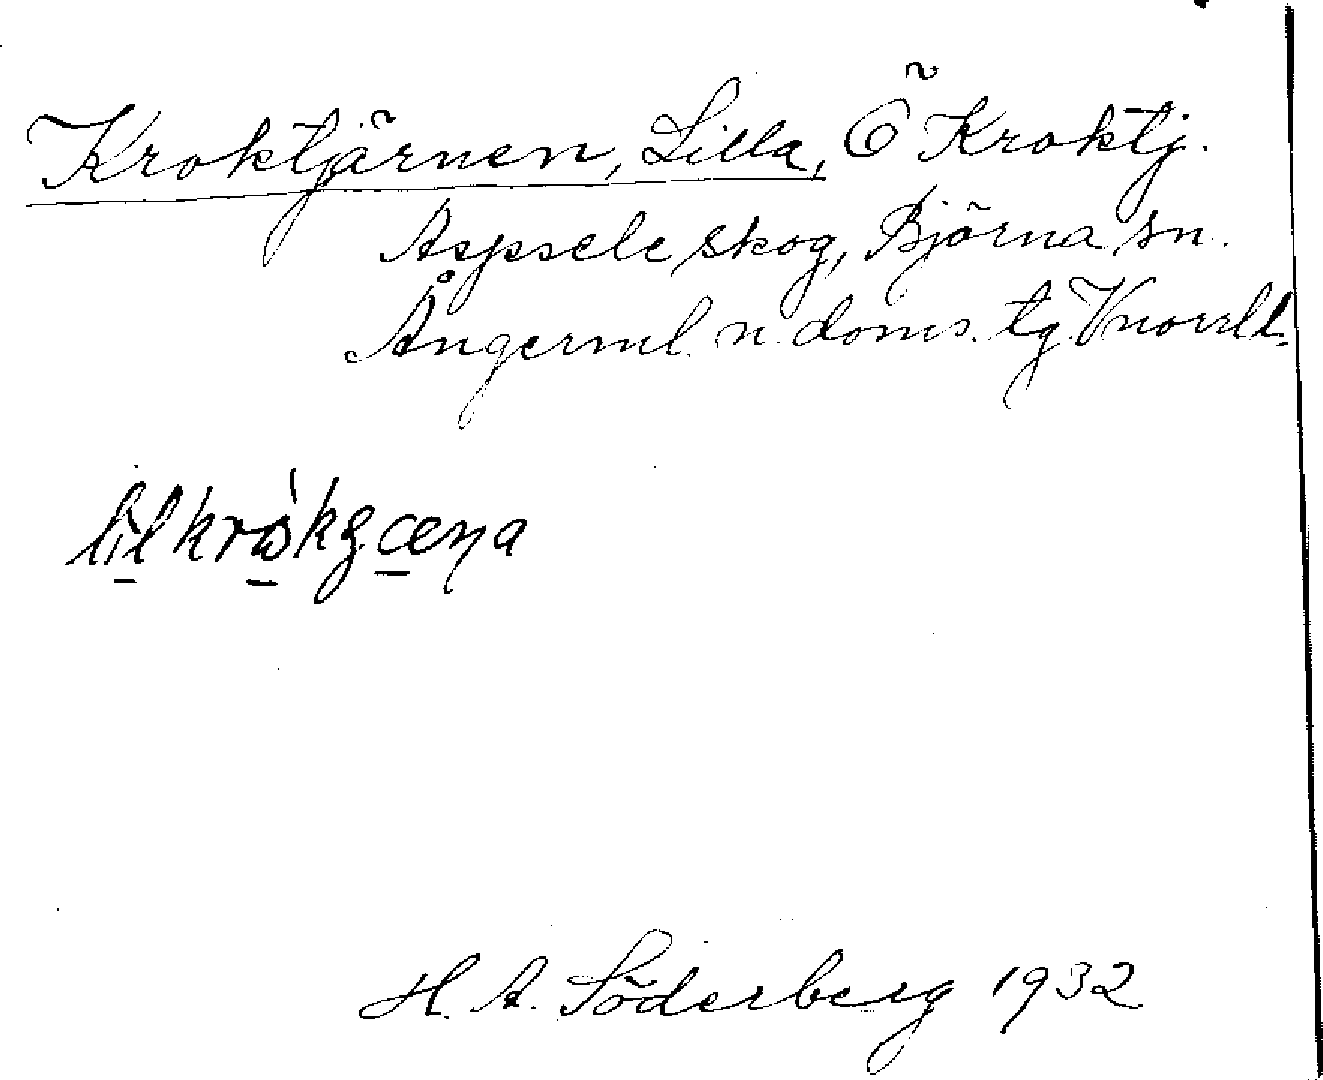 Kroktjärnen, Lilla, Ö Kroktj.
Aspsele skog, Björna sn.
Ångerml. n. doms. tg. Vnorrld.
H. A. Söderberg 1932